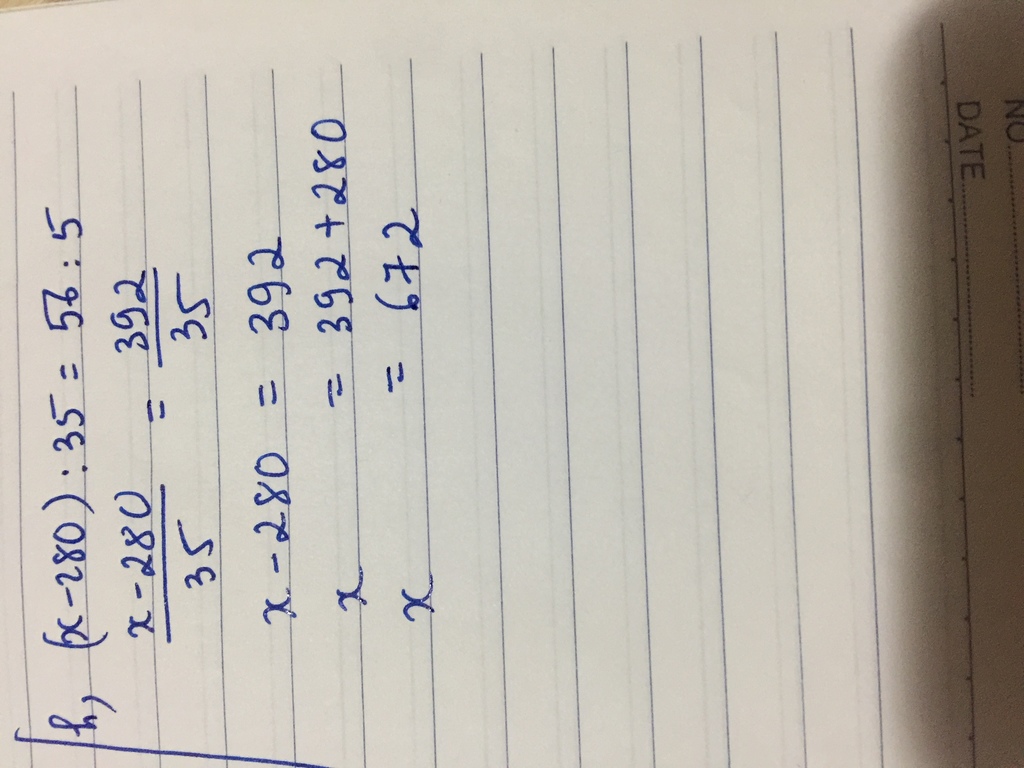 NO
DATE
h, (x-280) : 35 = 56 : 5
x-280/35 = 392/35
x - 280 = 392
x = 392 + 280
x = 672